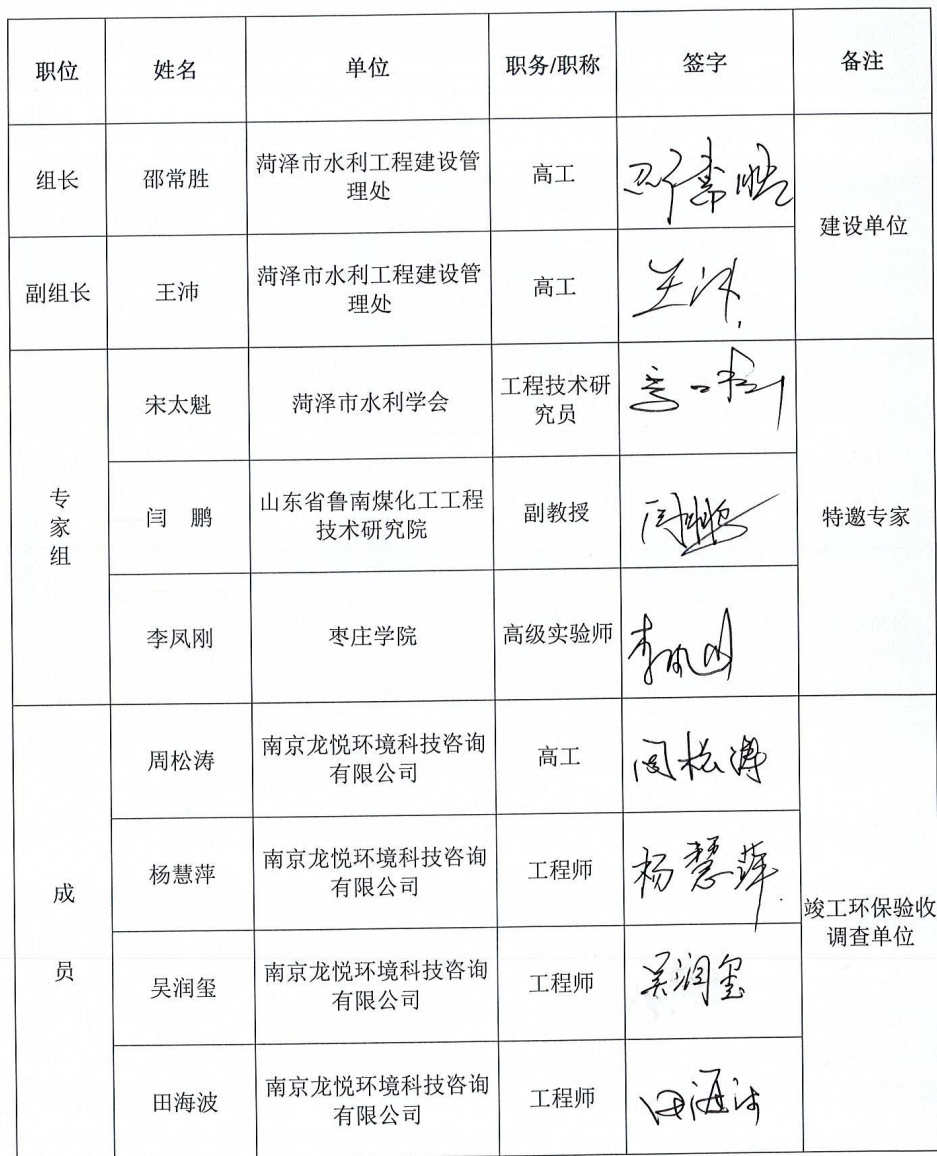 职位 姓名 单位 职务/职称 签字 备注
组长 邵常胜 菏泽市水利工程建设管
理处 高工 邵常胜 建设单位
副组长 王沛 菏泽市水利工程建设管
理处 高工 王沛
专
家
组
宋太魁 菏泽市水利学会 工程技术研
究员
闫 鹏 山东省鲁南煤化工工程
技术研究院 副教授 闫鹏 特邀专家
李凤刚 枣庄学院 高级实验师 李凤刚
成
员
周松涛 南京龙悦环境科技咨询
有限公司 高工 周松涛
杨慧萍 南京龙悦环境科技咨询
有限公司 工程师 杨慧萍
竣工环保验收
调查单位
吴润玺 南京龙悦环境科技咨询
有限公司 工程师 吴润玺
田海波 南京龙悦环境科技咨询
有限公司 工程师 田海波